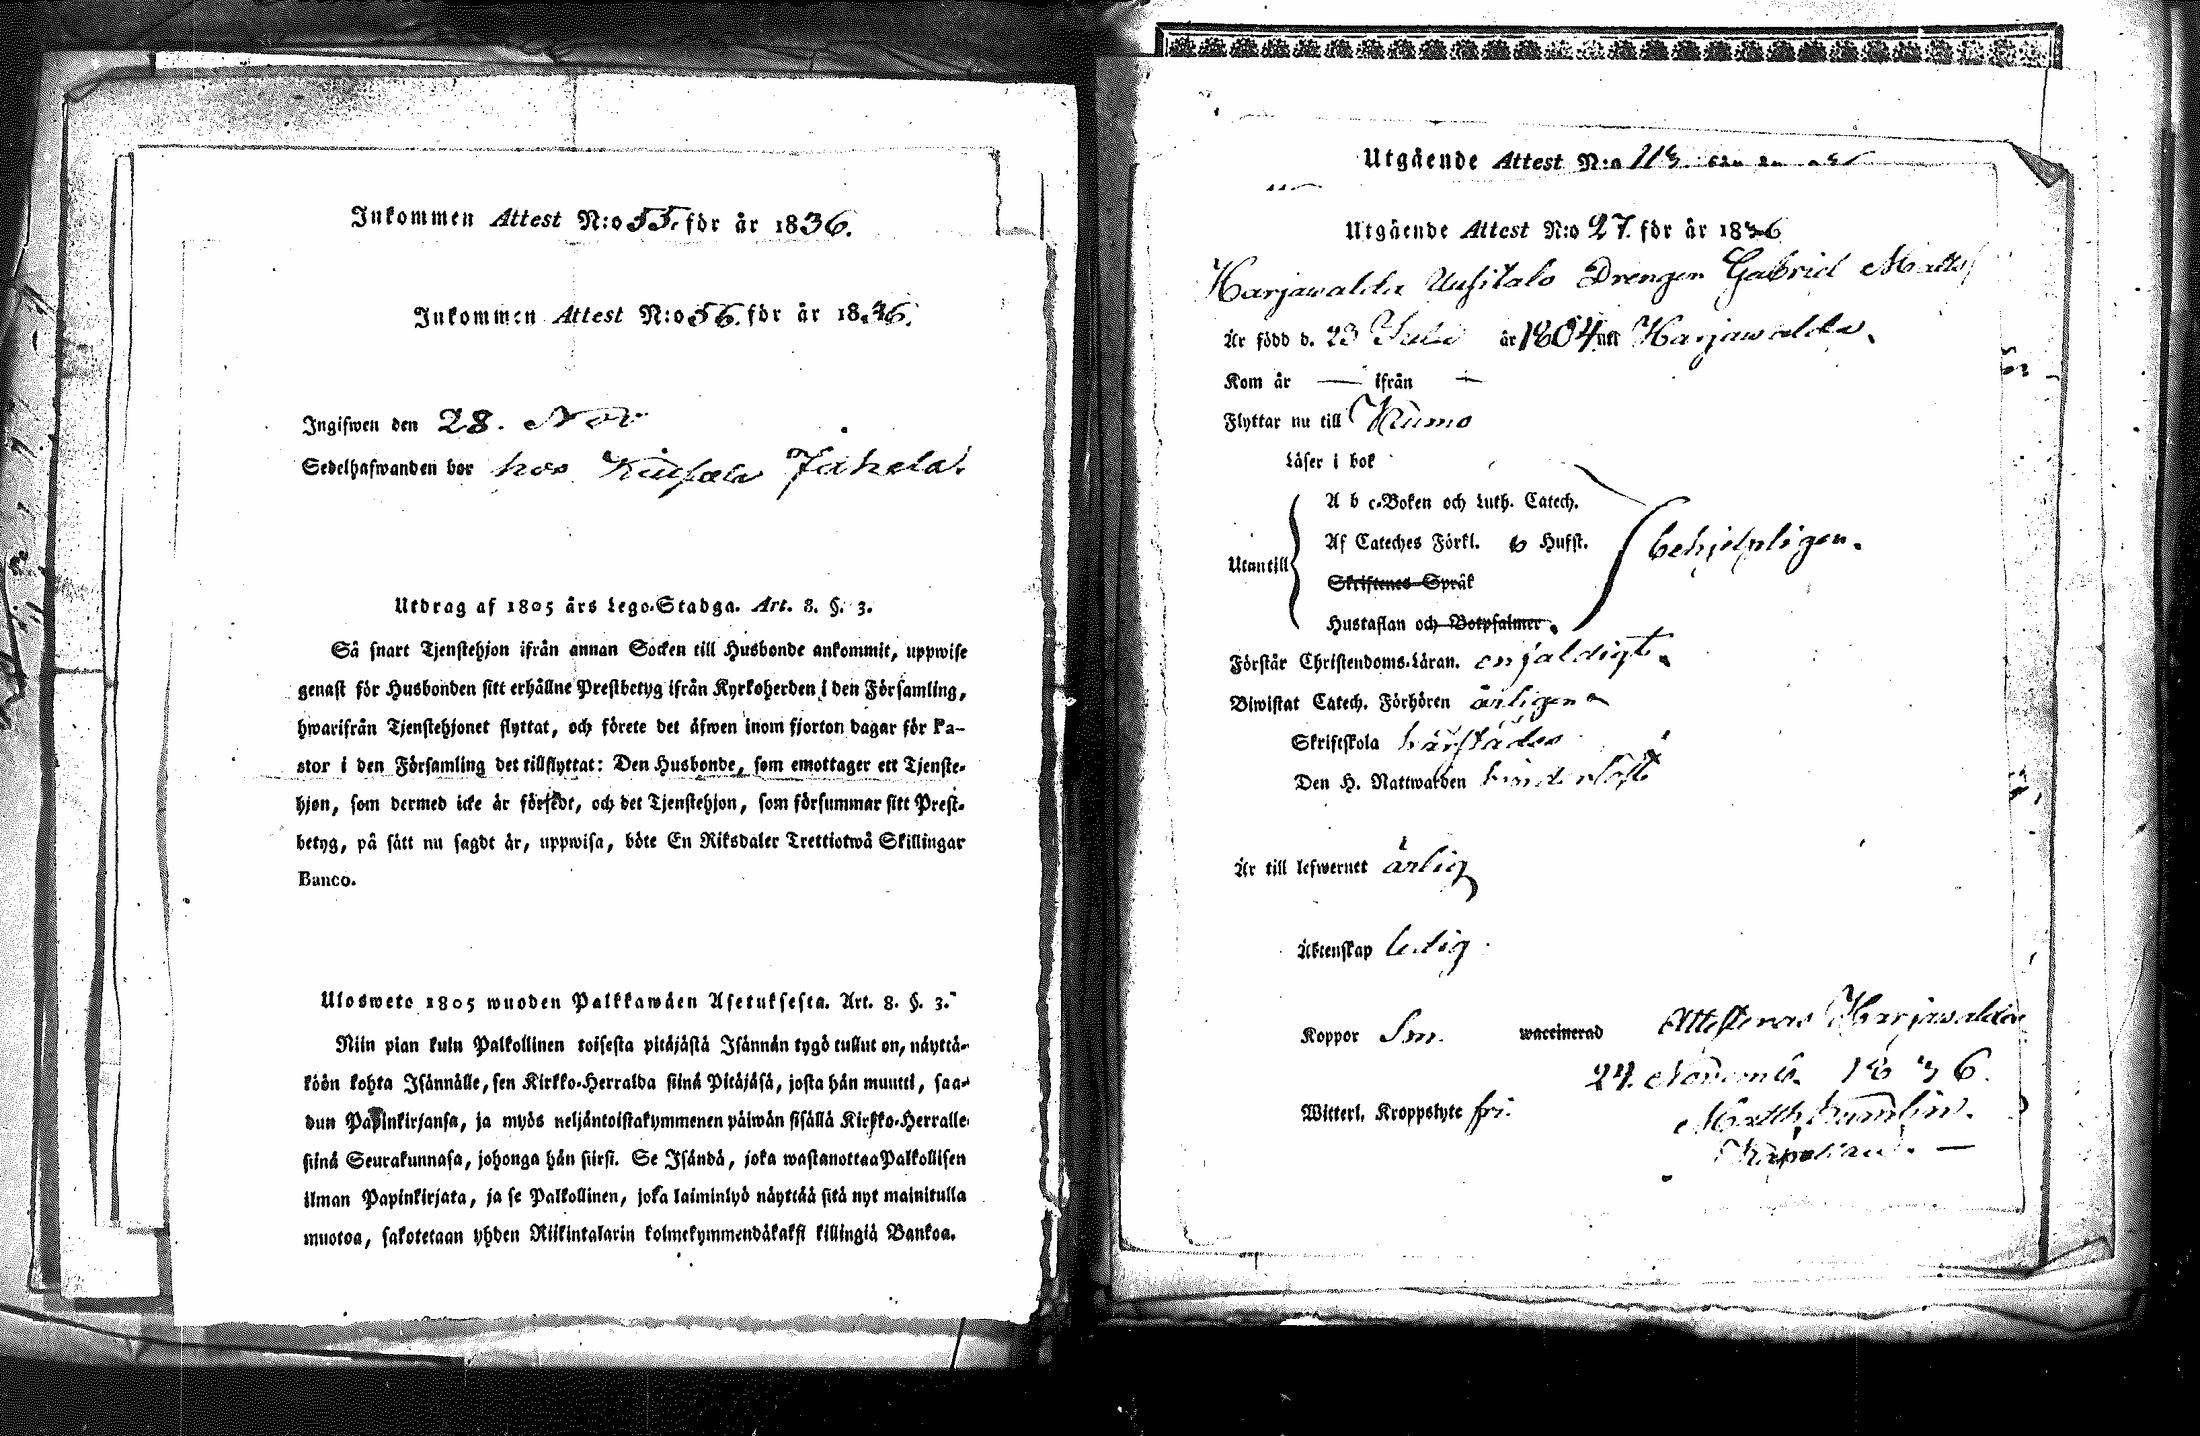 Inkommen Attest N:o 55. för år 1836.
Inkommen Attest N:o 56. för år 1836.
Ingifwen den 28. Nov
Sedelhafwanden bor hos
Utdrag af 1805 års Lego-Stadga. Art. 8. §. 3.
Så snart Tjenstehjon ifrån annan Socken till Husbonde ankommit, uppwise
genast för Husbonden sitt erhållne Prestbetyg ifrån Kyrkoherden i den Församling,
hwarifrån Tjenstehjonet flyttat, och förete det äfwen inom fjorton dagar för Pa-
stor i den Församling det tillflyttat: Den Husbonde, som emottager ett Tjenste-
hjon, som dermed icke är försedt, och det Tjenstehjon, som försummar sitt Prest-
betyg, på sätt nu sagdt är, uppwisa, böte En Riksdaler Trettiotwå Skillingar
Banco.
Ulosweto 1805 wuoden Palkkawäen Asetuksesta. Art. 8. §. 3.
Niin pian kuin Palkollinen toisesta pitäjästä Isännän tygö tullut on, näyttä-
köön kohta Isännälle, sen Kirkko-Herralda siinä Pitäjäsä, josta hän muutti, saa-
dun Papinkirjansa, ja myös neljäntoistakymmenen päiwän sisällä Kirkko-Herralle
siinä Seurakunnasa, johonga hän siirsi. Se Isändä, joka wastanottaa Palkollisen
ilman Papinkirjata, ja se Palkollinen, joka laiminlyö näyttää sitä nyt mainitulla
muotoa, sakotetaan yhden Riikintalarin kolmekymmendäkaksi killingiä Bankoa.
Utgående Attest N:o 118
Utgående Attest N:o 27. för år 1836
Harjawalda Uusitalo Drengen Gabriel Matts/
Är född d. 23 Juli år 1804 uti Harjawalda.
Kom år — ifrån —
Flyttar nu till Kumo
Läser i bok
A b c-Boken och Luth. Catech.
Af Cateches Förkl. 6 Hufst.
Utantill behjelpligen.
Skriftenes Språk
Hustaflan och Botpsalmer.
Förstår Christendoms-Läran. enfaldigt.
Biwistat Catech. Förhören årligen
Skriftskola härstädes
Den H. Nattwarden hinderlöst
Är till lefwernet ärlig
Äktenskap ledig
Koppor Sm. waccinerad Attesteras Harjawalda
24. Novemb. 1836.
Witterl. Kroppslyte fri.
Kapellan. —